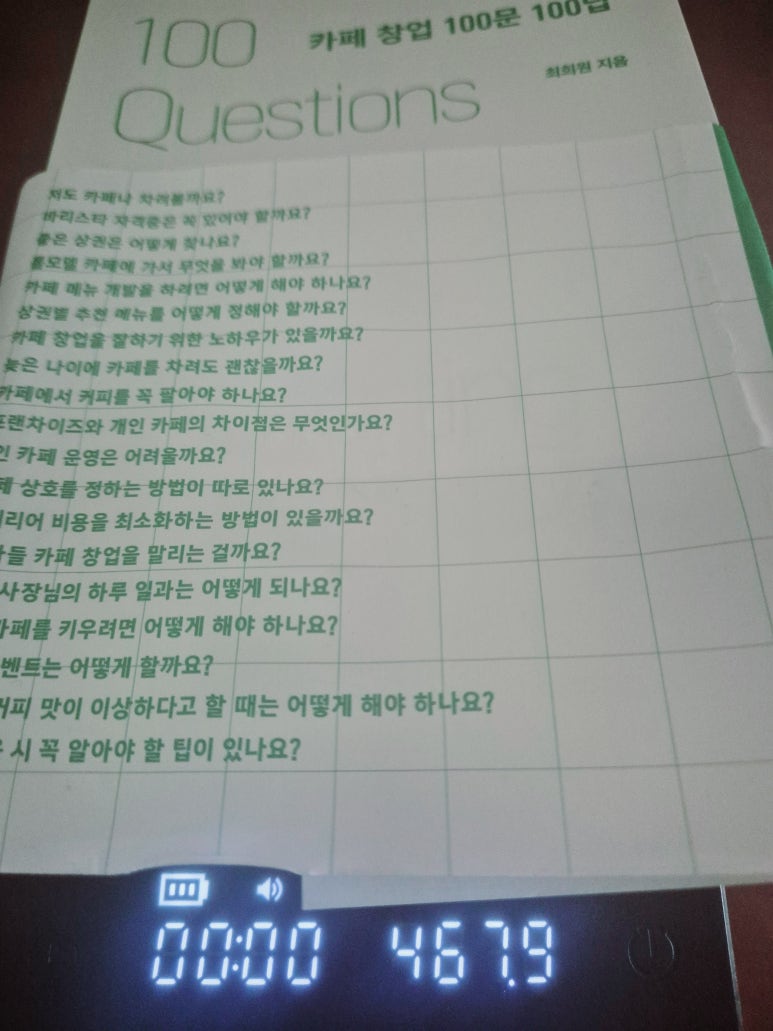 100
카페 창업 100문 100답
최희원 지음
Questions
저도 카페나 차려볼까요?
바리스타 자격증은 꼭 있어야 할까요?
좋은 상권은 어떻게 찾나요?
롤모델 카페에 가서 무엇을 봐야 할까요?
카페 메뉴 개발을 하려면 어떻게 해야 하나요?
상권별 추천 메뉴를 어떻게 정해야 할까요?
카페 창업을 잘하기 위한 노하우가 있을까요?
늦은 나이에 카페를 차려도 괜찮을까요?
카페에서 커피를 꼭 팔아야 하나요?
프랜차이즈와 개인 카페의 차이점은 무엇인가요?
인 카페 운영은 어려울까요?
페 상호를 정하는 방법이 따로 있나요?
리어 비용을 최소화하는 방법이 있을까요?
들 카페 창업을 말리는 걸까요?
사장님의 하루 일과는 어떻게 되나요?
카페를 키우려면 어떻게 해야 하나요?
벤트는 어떻게 할까요?
커피 맛이 이상하다고 할 때는 어떻게 해야 하나요?
시 꼭 알아야 할 팁이 있나요?
00:00 467.9